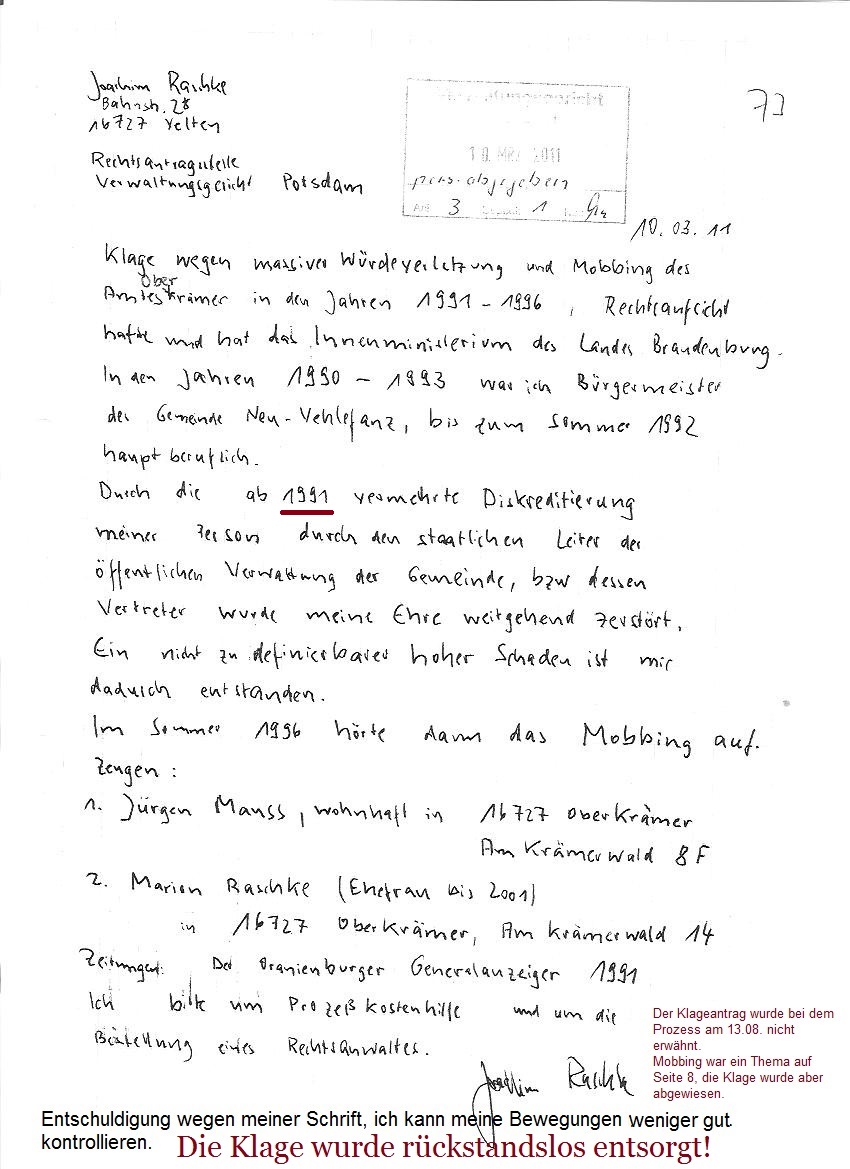 Joachim Raschke
Bahnstr. 28
16727 Velten
73
Rechtsantragstelle
Verwaltungsgericht Potsdam
10. MRZ. 2011
pers. abgegeben
3 1
10.03.11
Klage wegen massiver Würdeverletzung und Mobbing des
Amtes Oberkrämer in den Jahren 1991 - 1996, Rechtsaufsicht
hatte und hat das Innenministerium des Landes Brandenburg.
In den Jahren 1990 - 1993 war ich Bürgermeister
der Gemeinde Neu-Vehlefanz, bis zum Sommer 1992
hauptberuflich.
Durch die ab 1991 vermehrte Diskreditierung
meiner Person durch den staatlichen Leiter der
öffentlichen Verwaltung der Gemeinde, bzw dessen
Vertreter wurde meine Ehre weitgehend zerstört.
Ein nicht zu definierbarer hoher Schaden ist mir
dadurch entstanden.
Im Sommer 1996 hörte dann das Mobbing auf.
Zeugen:
1. Jürgen Mauss, wohnhaft in 16727 Oberkrämer
Am Krämerwald 8F
2. Marion Raschke (Ehefrau bis 2001)
in 16727 Oberkrämer, Am Krämerwald 14
Zeitungen: Der Oranienburger Generalanzeiger 1991
Ich bitte um Prozeßkostenhilfe und um die
Bestellung eines Rechtsanwaltes.
Joachim Raschke
Der Klageantrag wurde bei dem
Prozess am 13.08. nicht
erwähnt.
Mobbing war ein Thema auf
Seite 8, die Klage wurde aber
abgewiesen.
Entschuldigung wegen meiner Schrift, ich kann meine Bewegungen weniger gut
kontrollieren.
Die Klage wurde rückstandslos entsorgt!